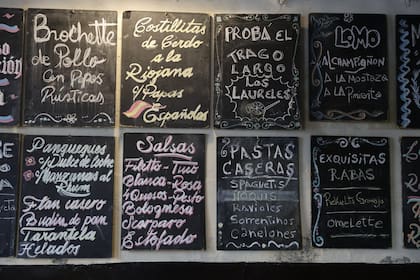 Brochette
de Pollo
Con Papas
Rústicas
Costillitas
de Cerdo a
la
Riojana
y Papas
Españolas
PROBA EL
TRAGO
LARGO
LOS
LAURELES
LOMO
A CHAMPIÑON
A LA MOSTAZA
A LA Pimienta
Panqueques
y Dulce de leche
Manzanas al
Rhum
Flan casero
Budin de pan
Tarantela
Helados
Salsas
Filetto - Tuco
Blanca - Rosa
4 Quesos - Pesto
Bolognesa
Scarparo
Estofado
PASTAS
CASERAS
SPAGUETIS
ÑOQUIS
RAVIOLES
Sorrentinos
Canelones
EXQUISITAS
RABAS
Revuelto Gramajo
omelette